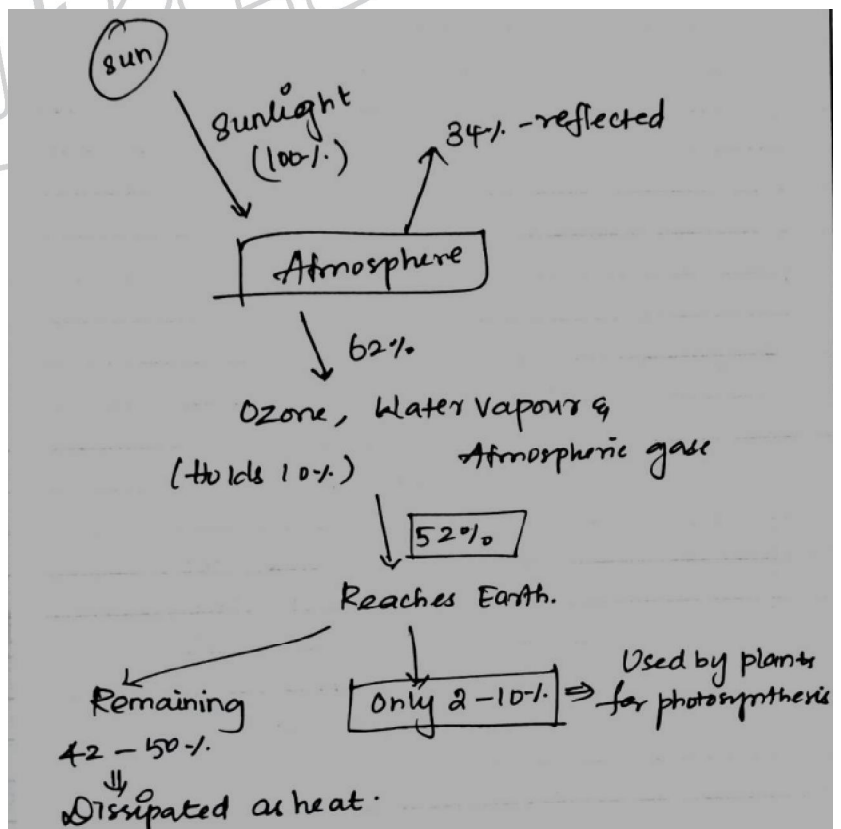 Sun
Sunlight
(100%)
34% - reflected
Atmosphere
62%
Ozone, Water Vapour &
(Holds 10%)
Atmospheric gase
52%
Reaches Earth.
Remaining
42 - 50%.
Dissipated as heat.
Only 2 - 10%. ⇒
Used by plants
for photosynthesis